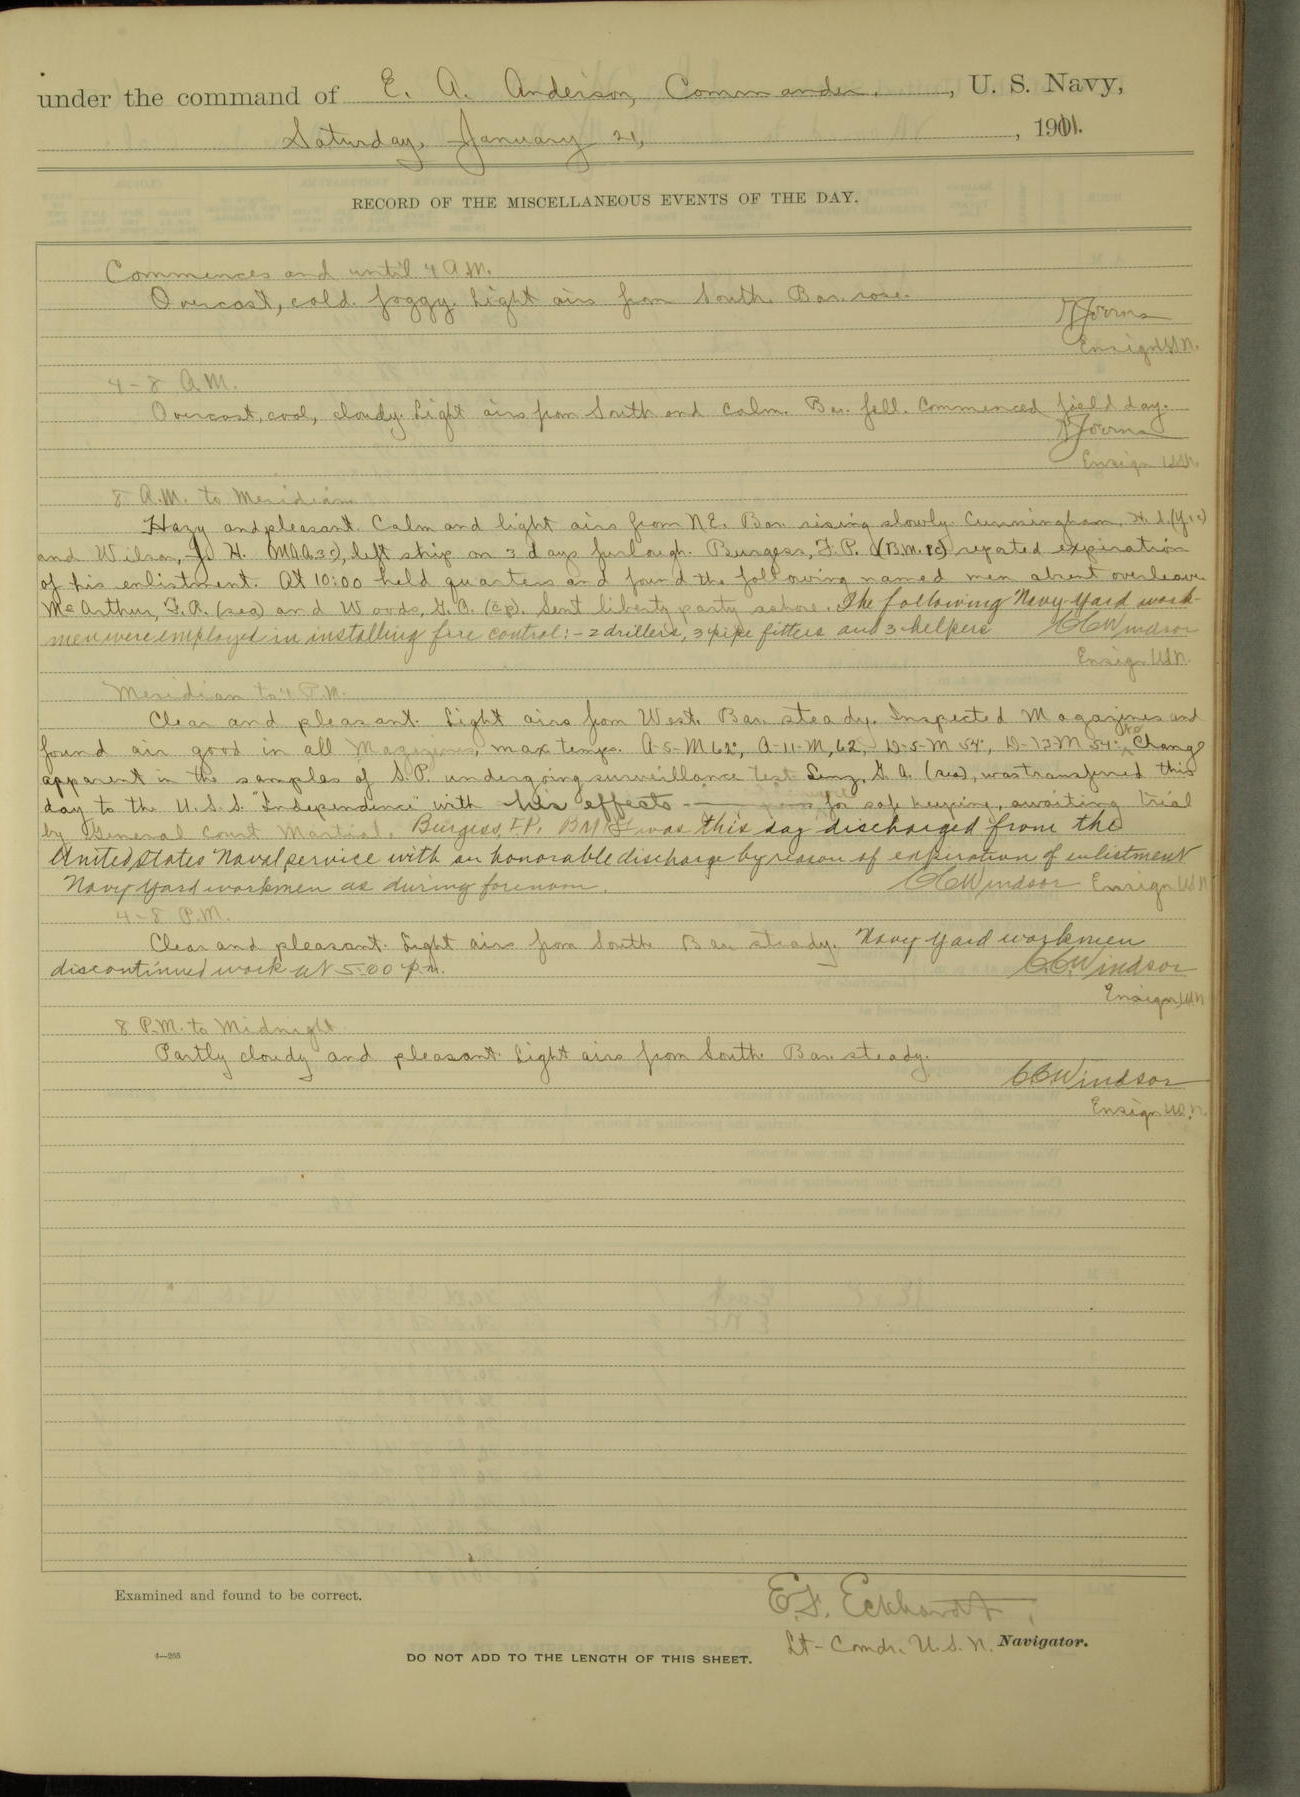 under the command of E. A. Anderson, Commander, U. S. Navy,
Saturday, January 21, 1911.
RECORD OF THE MISCELLANEOUS EVENTS OF THE DAY.
Commences and until 4 A.M.
Overcast, cold. foggy. Light airs from South. Bar. rose.
Ensign U.S.N.
4-8 A.M.
Overcast, cool, cloudy. Light airs from South and calm. Bar. fell. Commenced field day.
Ensign U.S.N.
8 A.M. to Meridian
Hazy and pleasant. Calm and light airs from N.E. Bar. rising slowly. Cunningham, H. S. (Y.1c)
and Wilson, J. H. (MAA3c), left ship on 3 days furlough. Burgess, F.P. (B.M.1c) reported expiration
of his enlistment. At 10:00 held quarters and found the following named men absent overleave
McArthur, F.A. (sea) and Woods, G.A. (cp). Sent liberty party ashore. The following Navy Yard work-
men were employed in installing fire control:- 2 drillers, 3 pipe fitters and 3 helpers CCWindsor
Ensign U.S.N.
Meridian to 4 P.M.
Clear and pleasant. Light airs from West. Bar. steady. Inspected Magazines and
found air good in all Magazines, max temps. A-5-M 62°, A-11-M, 62, D-5-M 54°, D-13-M 54°. No Change
apparent in the samples of S.P. undergoing surveillance test. Lenz, G.A. (sea), was transferred this
day to the U.S.S. "Independence" with his effects for safe keeping, awaiting trial
by General Court Martial. Burgess, F.P. BM1c was this day discharged from the
United States Naval service with an honorable discharge by reason of expiration of enlistment
Navy Yard workmen as during forenoon. CCWindsor Ensign U.S.N.
4-8 P.M.
Clear and pleasant. Light airs from South. Bar steady. Navy Yard workmen
discontinued work at 5:00 p.m. C.C.Windsor
Ensign U.S.N
8 P.M. to Midnight.
Partly cloudy and pleasant. Light airs from South. Bar. steady.
CCWindsor
Ensign U.S.N.
Examined and found to be correct.
E.F. Eckhardt,
Lt-Comdr. U.S.N. Navigator.
4—265
DO NOT ADD TO THE LENGTH OF THIS SHEET.